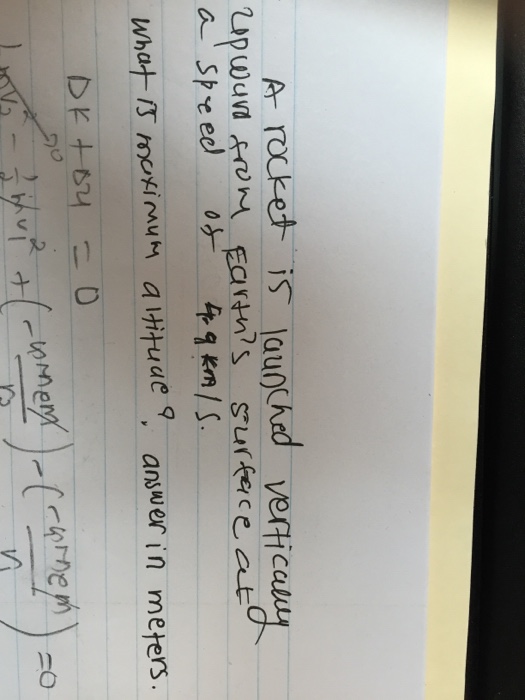 A rocket is launched vertically
upward from Earth's surface at
a speed of 4.9 km/s.
what is maximum altitude?, answer in meters.
DK + DU = 0
1/2 mv₂² →0 - 1/2 mv₁² + (-GMem/r₂) - (-GMem/r₁) = 0